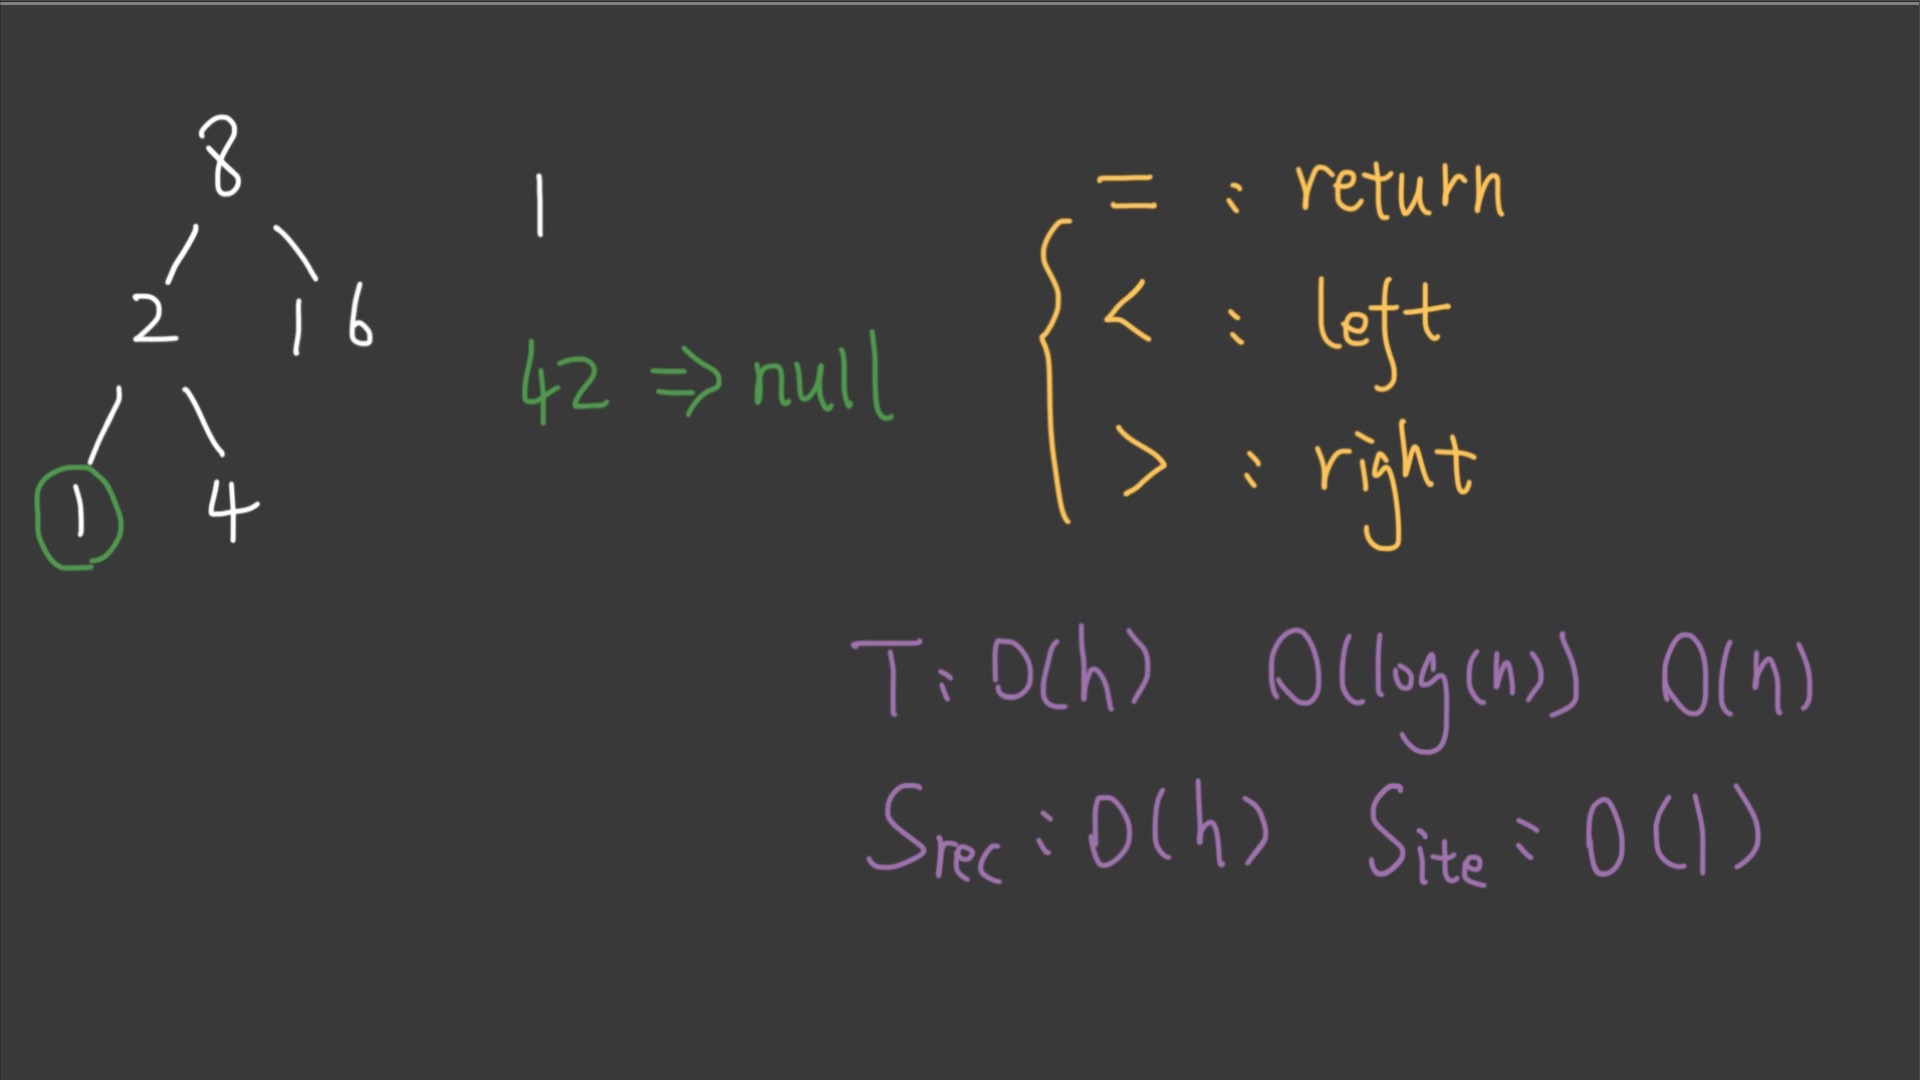 8
2 16
1 4
1
42 => null
= : return
< : left
> : right
T : O(h) O(log(n)) O(n)
Srec : O(h) Site : O(1)